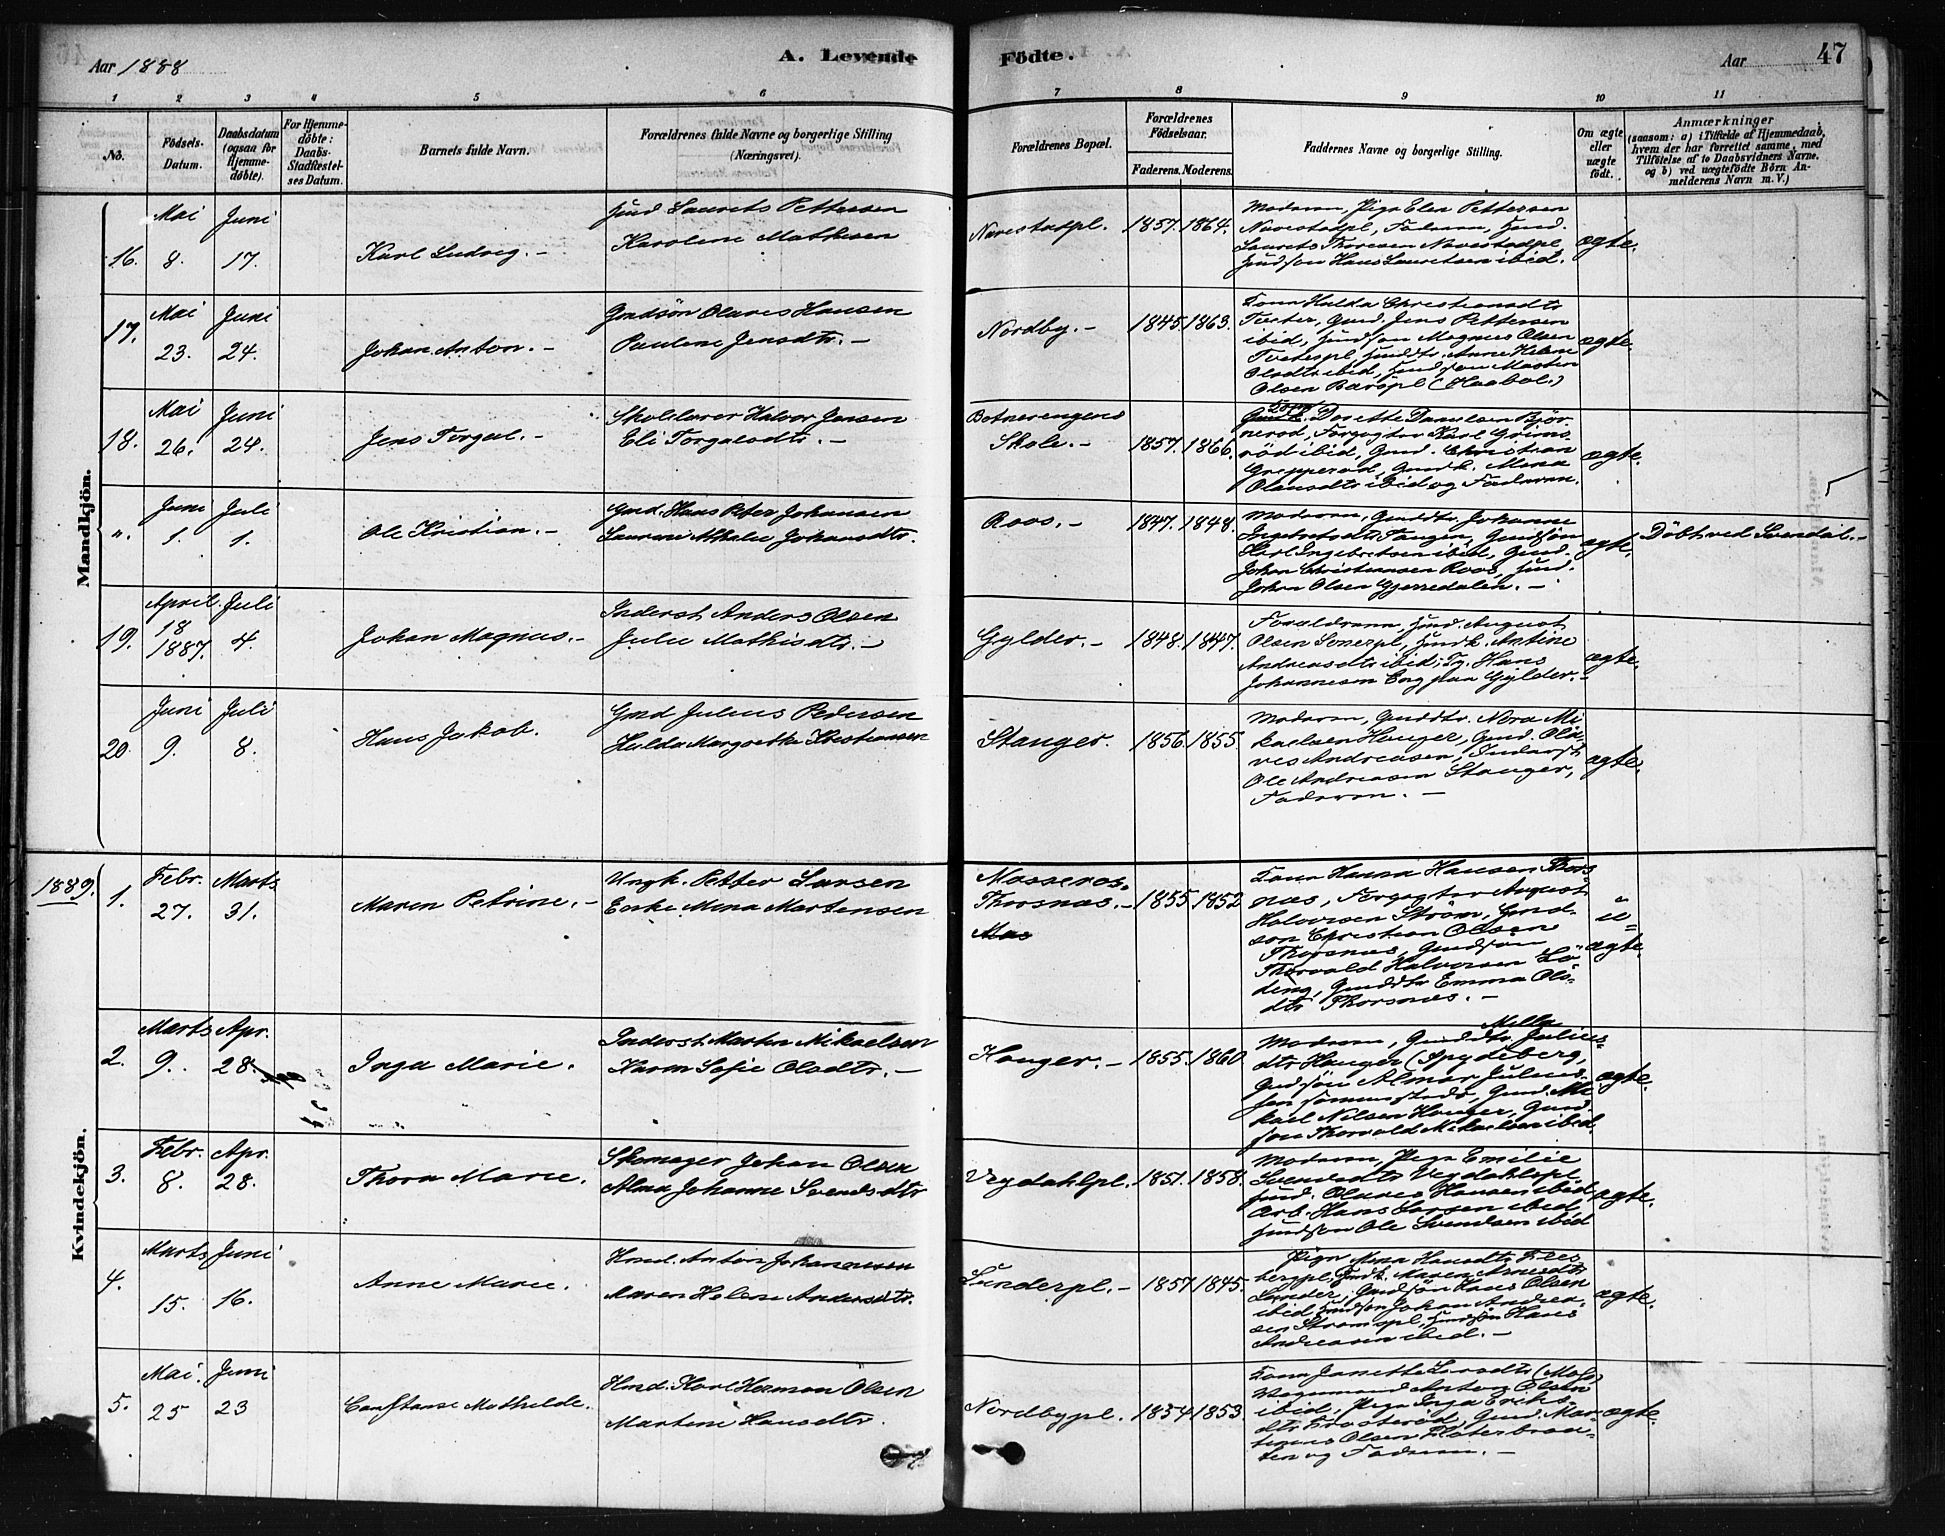 Aar 1888
A. Levende
Fødte.
Aar
47
1 2 3 4 5 6 7 8 9 10 11
No.
Fødsels-
Datum.
Daabsdatum
(ogsaa for
Hjemme-
døbte).
For Hjemme-
døbte:
Daabs-
Stadfæstel-
ses Datum.
Barnets fulde Navn.
Forældrenes fulde Navne og borgerlige Stilling
(Næringsvei).
Forældrenes Bopæl.
Forældrenes
Fødselsaar.
Faderens. Moderens.
Faddernes Navne og borgerlige Stilling.
Om ægte
eller
uægte
født.
Anmærkninger
(saasom: a) i Tilfælde af Hjemmedaab,
hvem der har forrettet samme, med
Tilføielse af to Daabsvidners Navne.
og b) ved uægtefødte Børn An-
melderens Navn m. V.)
Mandkjøn.
16.
Mai
8.
Juni
17.
Karl Ludvig. -
Husmd Laurits Pettersen
Karoline Mathisen
Navestadpl.
1857. 1864.
Moderen, Pige Elen Pettersen
Navestadpl, Faderen, Husmd.
Laurits Thoresen Navestadpl,
Hansen Hans Lauritsen ibid.
ægte.
17.
Mai
23.
Juni
24.
Johan Anton. -
Gmdsøn Olaves Hansen
Pauline Jensdtr. -
Nordby. -
1845. 1863.
Kone Hulda Christiansdtr
Tveter, Gmd. Jens Pettersen
ibid, Husmdsøn Magnus Olsen
Tveterpl, Husmddtr. Anne Helene
Olsdtr ibid, Husmdsøn Morten
Olsen Barspl (Haabøl.)
ægte.
18.
Mai
26.
Juni
24.
Jens Torgal. -
Skolelærer Halvor Jensen
Eli Torgalsdtr. -
Botnerengens
Skole. -
1857. 1866.
Dorette Danielsen Bjør-
nerød, Forpagter Karl Grims-
rød ibid, Gmd. Christian
Grepperød, Gmdk. Mina
Olausdtr ibid og Faderen.
ægte.
".
Juni
1.
Juli
1.
Ole Kristian. -
Gmd. Hans Peter Johansen
Laurine Athalie Johansdtr.
Roos. -
1847. 1848.
Moderen, Gmddtr. Johanne
Ingebretsdtr Tangen, Gmdsøn
Karl Ingebretsen ibid, Gmd.
Johan Christiansen Roos, Husmd.
Johan Olsen Gjerredalen. -
ægte.
Døbt ved Svendal. -
19.
April
18
1887.
Juli
4.
Johan Magnus. -
Inderst Anders Olsen
Julie Mathisdtr. -
Gylder. -
1848. 1847.
Forældrene, Husmd. August
Olsen Sonerpl, Husmdk. Antine
Andreasdtr ibid; Tj. Hans
Johannesen Eng paa Gylder. -
ægte.
20.
Juni
9.
Juli
8.
Hans Jakob.
Gmd Julius Pedersen
Hulda Margrethe Kristiansen
Stanger.
1856. 1855.
Moderen, Gmddtr. Nora Mi-
kaelsen Houger, Gmd. Ola-
ves Andreasen, Inderst
Ole Andreasen Stanger,
Faderen. -
ægte.
1889.
Kvindekjøn.
1.
Febr.
27.
Marts
31.
Maren Petrine. -
Ungk. Petter Larsen
Enke Mina Martensen
Mosseros.
Thorsnæs. -
Mos
1855. 1852
Kone Hanna Hansen Thors-
næs, Forpagter August
Halvorsen Strøm, Gmd-
søn Christian Olsen
Thorsnæs, Gmdsøn
Thorvald Halvorsen Lø-
ding, Gmddtr Emma Ols-
dtr Thorsnæs. -
u-
ægte.
2.
Marts
9.
Apr.
28.
Inga Marie.
Inderst Morten Mikaelsen
Karen Sofie Olsdtr. -
Houger. -
1855. 1860
Moderen, Gmddtr Milla Julius-
dtr Houger (Spydeberg,
Gmdsøn Almar Julius-
sen sammesteds, Gmd. Mi-
kael Nilsen Houger, Gmd-
søn Thorvald Mikaelsen ibid.
ægte.
3.
Febr.
8.
Apr.
28.
Thora Marie.
Skomager Johan Olsen
Alma Johanne Svendsdtr
Vegdahlpl.
1851. 1858.
Moderen, Pige Emilie
Svendsdtr Vegdahlspl.
Husmd. Olaves Hansen ibid
Arb. Hans Larsen ibid
Husmdsøn Ole Svendsen ibid
ægte.
4.
Marts
15.
Juni
16.
Anne Marie.
Husmd. Anton Johannesen
Maren Helene Andersdtr.
Sunderpl. -
1857 1845.
Pige Mina Hansdtr
bergpl, Gmdk. Maren Arnesdtr
Sunder, Gmdsøn Hans Olsen
ibid, Husmdsøn Johan Andrea-
sen Strømspl, Husmdsøn Hans
Andreasen ibid. -
ægte.
5.
Mai.
25
Juni
23
Constanse Mathilde.
Husmd. Karl Herman Olsen
Martine Hansdtr.
Nordbypl.
1854 1853.
Kone Janette Larsdtr (Moss)
Vognmand Anton Olsen
ibid, Pige Inga Eriks-
dtr Frosterød, Gmd. Mar-
tinus Olsen Platerbraa-
ten og Faderen. -
ægte.